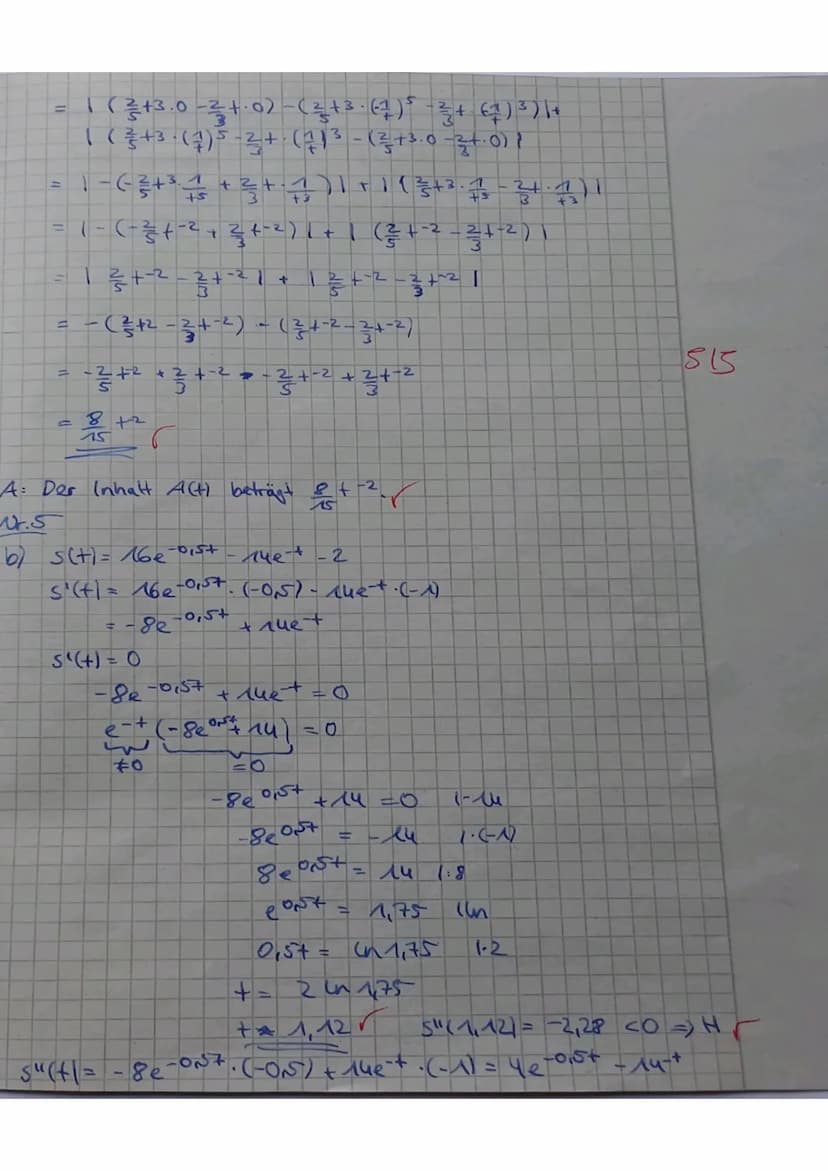 = | (2/5 t^3 · 0 - 2/3 t · 0) - (2/5 t^3 · (-1/t)^5 - 2/3 t · (-1/t)^3) | +
| (2/5 t^3 · (1/t)^5 - 2/3 t · (1/t)^3 - (2/5 t^3 · 0 - 2/3 t · 0) |
= | - (-2/5 t^3 · 1/t^5 + 2/3 t · 1/t^3) | + | (2/5 t^3 · 1/t^5 - 2/3 t · 1/t^3) |
= | - (-2/5 t^-2 + 2/3 t^-2) | + | (2/5 t^-2 - 2/3 t^-2) |
= | 2/5 t^-2 - 2/3 t^-2 | + | 2/5 t^-2 - 2/3 t^-2 |
= - (2/5 t^2 - 2/3 t^-2) - (2/5 t^-2 - 2/3 t^-2)
= - 2/5 t^-2 + 2/3 t^-2 - 2/5 t^-2 + 2/3 t^-2
5/5
= 8/15 t^-2 ✓
A: Der Inhalt A(t) beträgt 8/15 t^-2. ✓
Nr. 5
b) s(t) = 16e^-0,5t - 14e^-t - 2
s'(t) = 16e^-0,5t · (-0,5) - 14e^-t · (-1)
= -8e^-0,5t + 14e^-t
s'(t) = 0
-8e^-0,5t + 14e^-t = 0
e^-t (-8e^0,5t + 14) = 0
≠0 =0
-8e^0,5t + 14 = 0 |-14
-8e^0,5t = -14 |·(-1)
8e^0,5t = 14 |:8
e^0,5t = 1,75 |ln
0,5t = ln 1,75 |·2
t = 2 ln 1,75
t ≈ 1,12 ✓ s''(1,12) = -2,28 < 0 => H ✓
s''(t) = -8e^-0,5t · (-0,5) + 14e^-t · (-1) = 4e^-0,5t - 14^-t